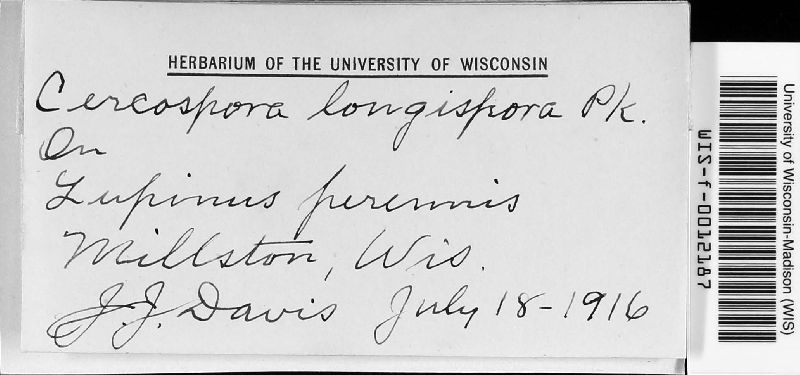 HERBARIUM OF THE UNIVERSITY OF WISCONSIN
Cercospora longispora Pk.
On
Lupinus perennis
Millston, Wis.
J. J. Davis July 18-1916
University of Wisconsin-Madison (WIS)
WIS-f-0012187